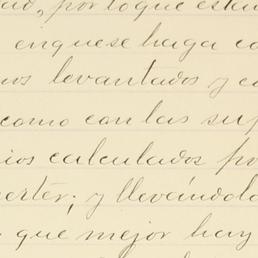 por lo que
en que se haga co
levantados y c
como con las sup
ios calculados po
erter; y llevándolo
que mejor hay